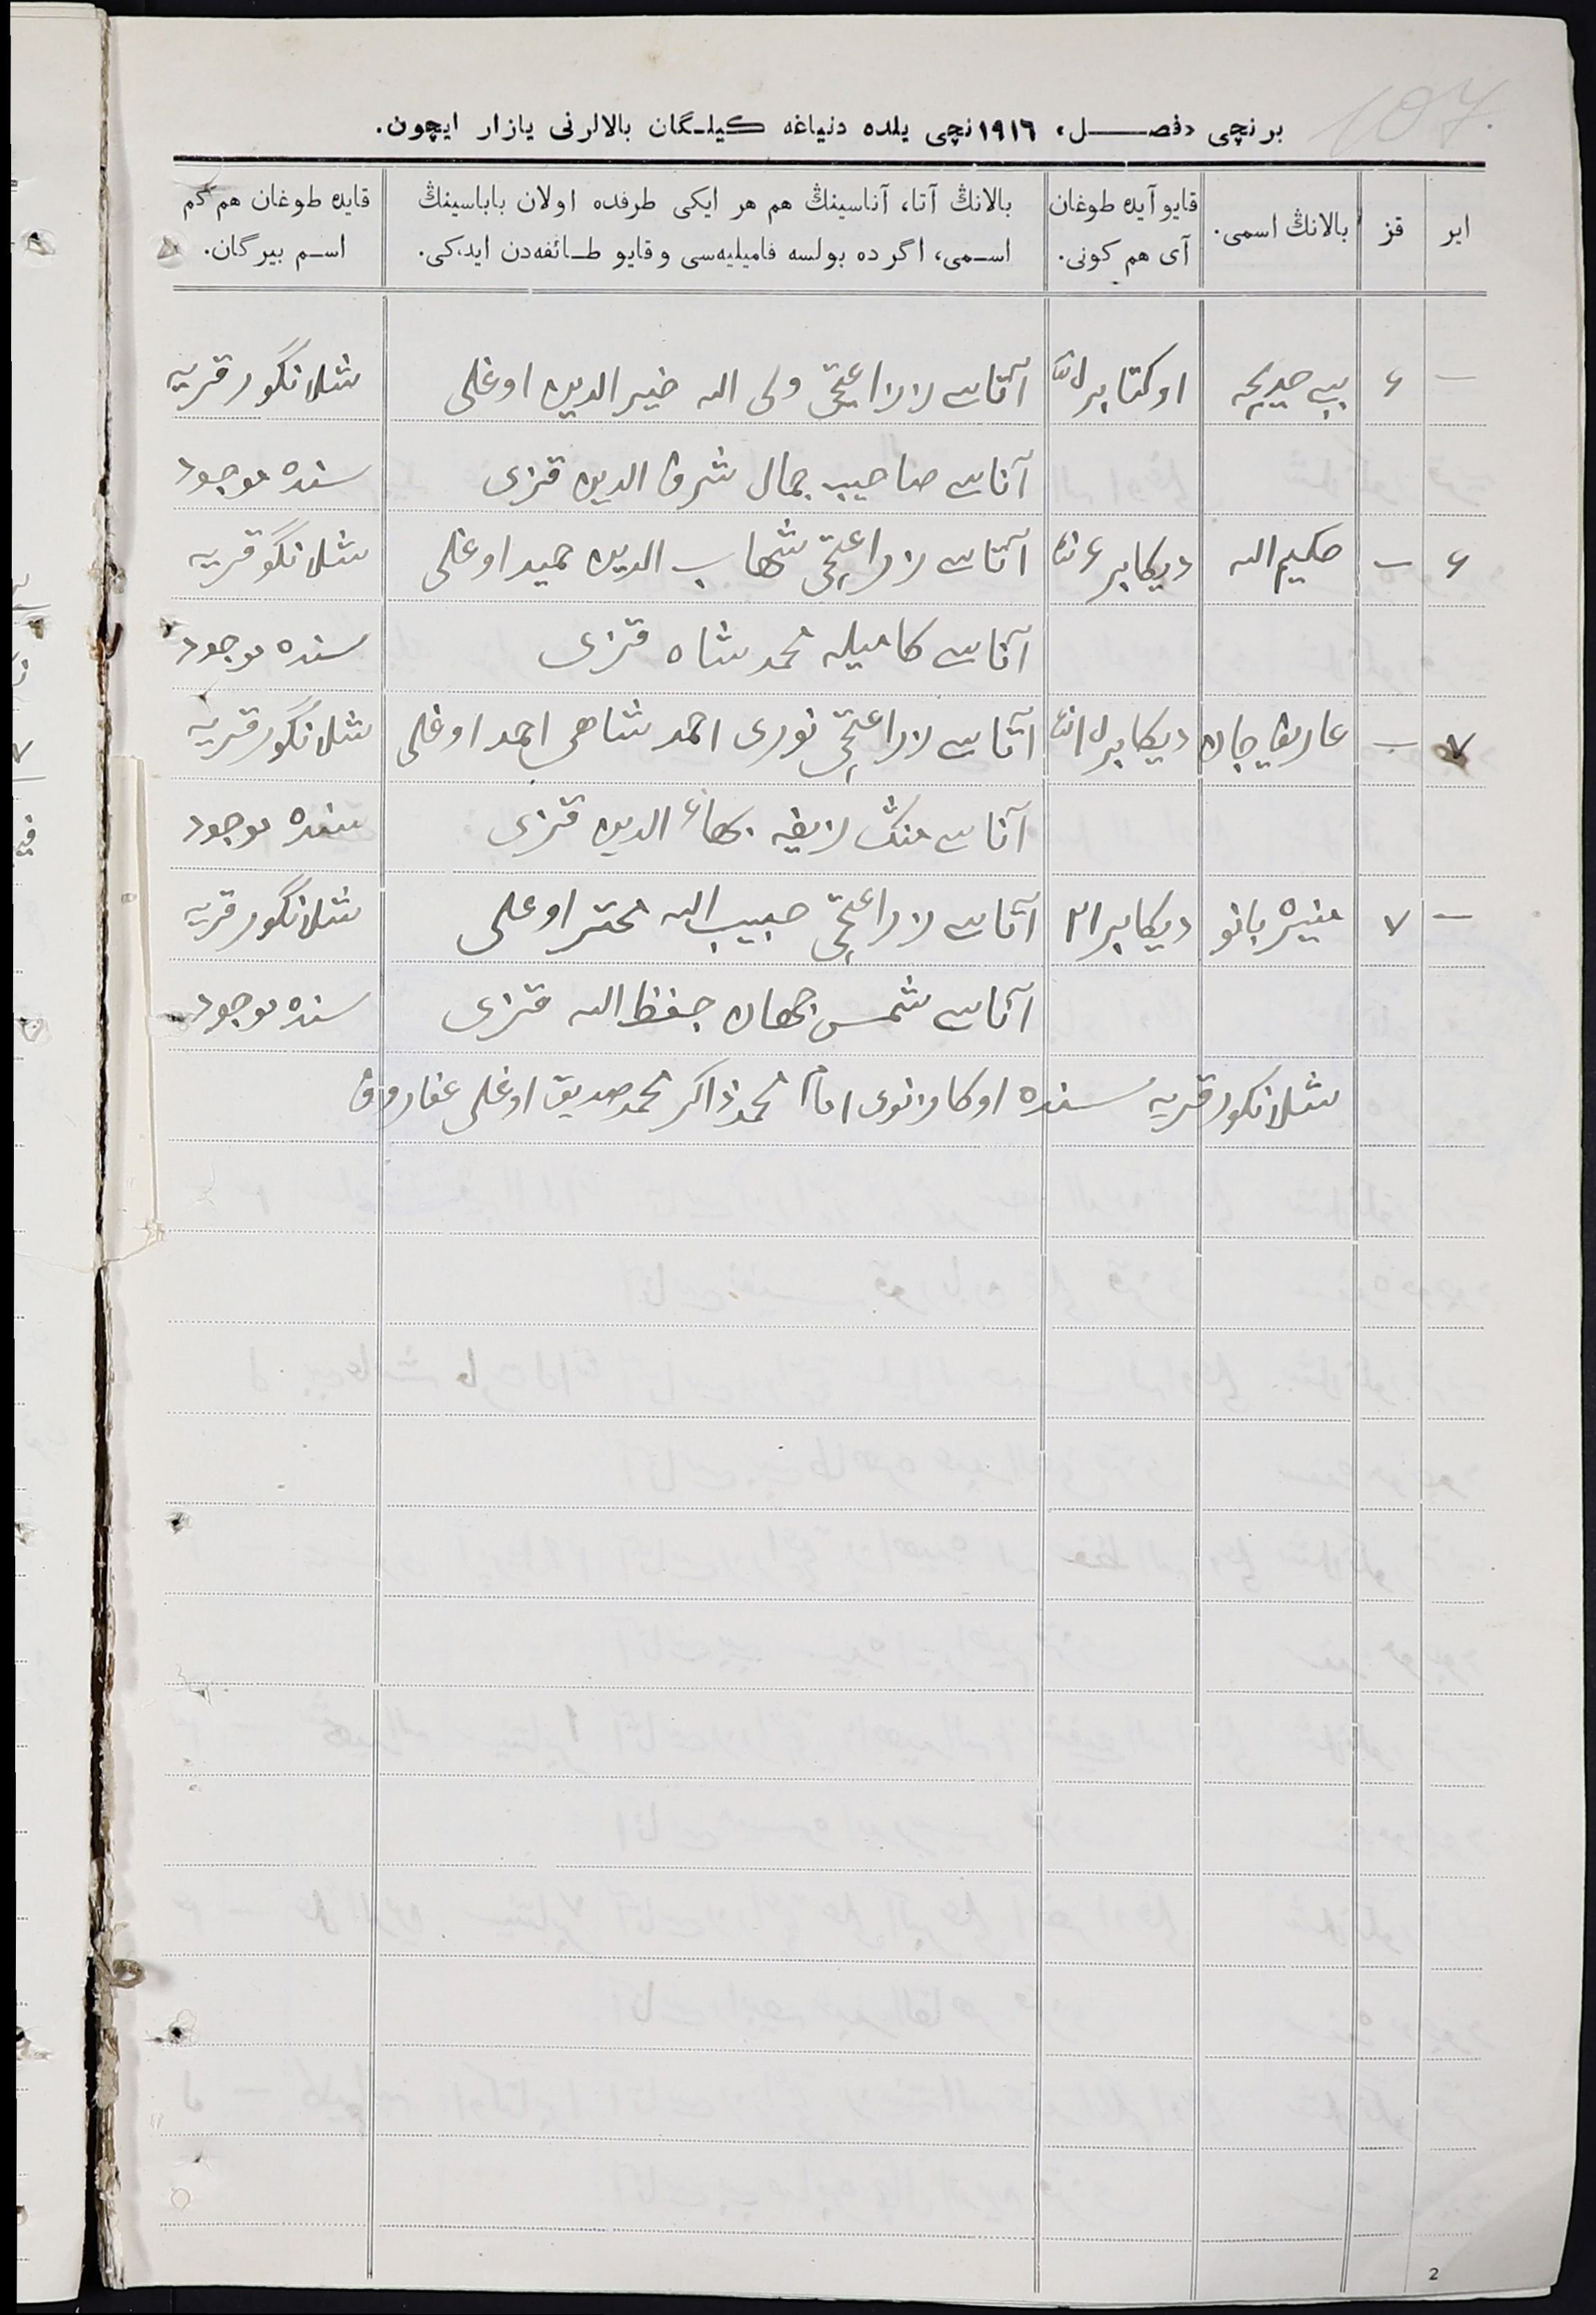 107.
برنچی «فصل» ١٩١٦نچی يلده دنياغه كيلگان بالالرنی يازار ايچون.
اير
قز
بالانڭ اسمی.
قايو آيده طوغان
آی هم كونی.
بالانڭ آتا، آناسينڭ هم هر ايكی طرفده اولان باباسينڭ
اسمی، اگر ده بولسه فاميليه‌سی و قايو طائفه‌دن ايدكی.
قايده طوغان هم كم
اسم بيرگان.
— ۶ بيبی خديجه اوكتابر آتاسی زراعتچی ولی الله خير الدين اوغلی شلانگور قريه
آناسی صاحيب جمال شرف الدين قزی سنده موجود
۶ — حكيم الله ديكابر ۶ آتاسی زراعتچی شهاب الدين حميد اوغلی شلانگو قريه
آناسی كاميله محمد شاه قزی سنده موجود
٧ — عارف جان ديكابر آتاسی زراعتچی نوری احمد شاهی احمد اوغلی شلانگور قريه
آناسی منڭ زيفه بهاء الدين قزی سنده موجود
— ٧ منيره بانو ديكابر ٢١ آتاسی زراعتچی حبيب الله مختر اوغلی شلانگور قريه
آناسی شمس جهان حفظ الله قزی سنده موجود
شلانكور قريه سنده اوكازنوی امام محمد ذاكر محمد صديق اوغلی غفاروف
2